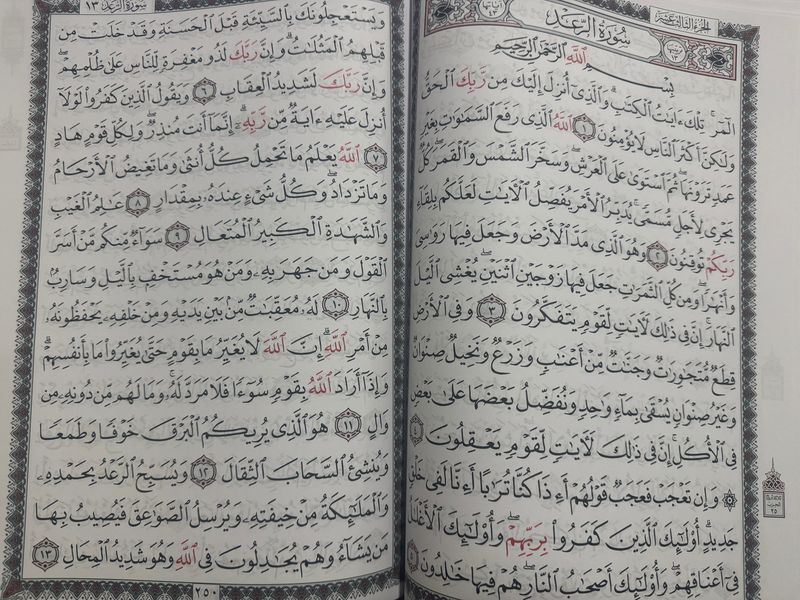 الجزء الثالث عشر
سُورَةُ الرَّعْدِ
بِسْمِ ٱللَّهِ ٱلرَّحْمَٰنِ ٱلرَّحِيمِ
الٓمٓر ۚ تِلْكَ ءَايَٰتُ ٱلْكِتَٰبِ ۗ وَٱلَّذِىٓ أُنزِلَ إِلَيْكَ مِن رَّبِّكَ ٱلْحَقُّ
وَلَٰكِنَّ أَكْثَرَ ٱلنَّاسِ لَا يُؤْمِنُونَ ١ ٱللَّهُ ٱلَّذِى رَفَعَ ٱلسَّمَٰوَٰتِ بِغَيْرِ
عَمَدٍ تَرَوْنَهَا ۖ ثُمَّ ٱسْتَوَىٰ عَلَى ٱلْعَرْشِ ۖ وَسَخَّرَ ٱلشَّمْسَ وَٱلْقَمَرَ ۖ كُلٌّ
يَجْرِى لِأَجَلٍ مُّسَمًّى ۚ يُدَبِّرُ ٱلْأَمْرَ يُفَصِّلُ ٱلْءَايَٰتِ لَعَلَّكُم بِلِقَآءِ
رَبِّكُمْ تُوقِنُونَ ٢ وَهُوَ ٱلَّذِى مَدَّ ٱلْأَرْضَ وَجَعَلَ فِيهَا رَوَٰسِىَ
وَأَنْهَٰرًا ۖ وَمِن كُلِّ ٱلثَّمَرَٰتِ جَعَلَ فِيهَا زَوْجَيْنِ ٱثْنَيْنِ ۖ يُغْشِى ٱلَّيْلَ
ٱلنَّهَارَ ۚ إِنَّ فِى ذَٰلِكَ لَءَايَٰتٍ لِّقَوْمٍ يَتَفَكَّرُونَ ٣ وَفِى ٱلْأَرْضِ
قِطَعٌ مُّتَجَٰوِرَٰتٌ وَجَنَّٰتٌ مِّنْ أَعْنَٰبٍ وَزَرْعٌ وَنَخِيلٌ صِنْوَانٌ
وَغَيْرُ صِنْوَانٍ يُسْقَىٰ بِمَآءٍ وَٰحِدٍ وَنُفَضِّلُ بَعْضَهَا عَلَىٰ بَعْضٍ
فِى ٱلْأُكُلِ ۚ إِنَّ فِى ذَٰلِكَ لَءَايَٰتٍ لِّقَوْمٍ يَعْقِلُونَ ٤
۞ وَإِن تَعْجَبْ فَعَجَبٌ قَوْلُهُمْ أَءِذَا كُنَّا تُرَٰبًا أَءِنَّا لَفِى خَلْقٍ
جَدِيدٍ ۗ أُو۟لَٰٓئِكَ ٱلَّذِينَ كَفَرُوا۟ بِرَبِّهِمْ ۖ وَأُو۟لَٰٓئِكَ ٱلْأَغْلَٰلُ
فِىٓ أَعْنَاقِهِمْ ۖ وَأُو۟لَٰٓئِكَ أَصْحَٰبُ ٱلنَّارِ ۖ هُمْ فِيهَا خَٰلِدُونَ
الحزب
٢٥
سورة الرعد ١٣
وَيَسْتَعْجِلُونَكَ بِٱلسَّيِّئَةِ قَبْلَ ٱلْحَسَنَةِ وَقَدْ خَلَتْ مِن
قَبْلِهِمُ ٱلْمَثُلَٰتُ ۗ وَإِنَّ رَبَّكَ لَذُو مَغْفِرَةٍ لِّلنَّاسِ عَلَىٰ ظُلْمِهِمْ ۖ
وَإِنَّ رَبَّكَ لَشَدِيدُ ٱلْعِقَابِ ٦ وَيَقُولُ ٱلَّذِينَ كَفَرُوا۟ لَوْلَآ
أُنزِلَ عَلَيْهِ ءَايَةٌ مِّن رَّبِّهِۦٓ ۗ إِنَّمَآ أَنتَ مُنذِرٌ ۖ وَلِكُلِّ قَوْمٍ هَادٍ
٧ ٱللَّهُ يَعْلَمُ مَا تَحْمِلُ كُلُّ أُنثَىٰ وَمَا تَغِيضُ ٱلْأَرْحَامُ
وَمَا تَزْدَادُ ۖ وَكُلُّ شَىْءٍ عِندَهُۥ بِمِقْدَارٍ ٨ عَٰلِمُ ٱلْغَيْبِ
وَٱلشَّهَٰدَةِ ٱلْكَبِيرُ ٱلْمُتَعَالِ ٩ سَوَآءٌ مِّنكُم مَّنْ أَسَرَّ
ٱلْقَوْلَ وَمَن جَهَرَ بِهِۦ وَمَنْ هُوَ مُسْتَخْفٍۭ بِٱلَّيْلِ وَسَارِبٌۢ
بِٱلنَّهَارِ ١٠ لَهُۥ مُعَقِّبَٰتٌ مِّنۢ بَيْنِ يَدَيْهِ وَمِنْ خَلْفِهِۦ يَحْفَظُونَهُۥ
مِنْ أَمْرِ ٱللَّهِ ۗ إِنَّ ٱللَّهَ لَا يُغَيِّرُ مَا بِقَوْمٍ حَتَّىٰ يُغَيِّرُوا۟ مَا بِأَنفُسِهِمْ ۗ
وَإِذَآ أَرَادَ ٱللَّهُ بِقَوْمٍ سُوٓءًا فَلَا مَرَدَّ لَهُۥ ۚ وَمَا لَهُم مِّن دُونِهِۦ مِن
وَالٍ ١١ هُوَ ٱلَّذِى يُرِيكُمُ ٱلْبَرْقَ خَوْفًا وَطَمَعًا
وَيُنشِئُ ٱلسَّحَابَ ٱلثِّقَالَ ١٢ وَيُسَبِّحُ ٱلرَّعْدُ بِحَمْدِهِۦ
وَٱلْمَلَٰٓئِكَةُ مِنْ خِيفَتِهِۦ وَيُرْسِلُ ٱلصَّوَٰعِقَ فَيُصِيبُ بِهَا
مَن يَشَآءُ وَهُمْ يُجَٰدِلُونَ فِى ٱللَّهِ وَهُوَ شَدِيدُ ٱلْمِحَالِ ١٣
٢٥٠